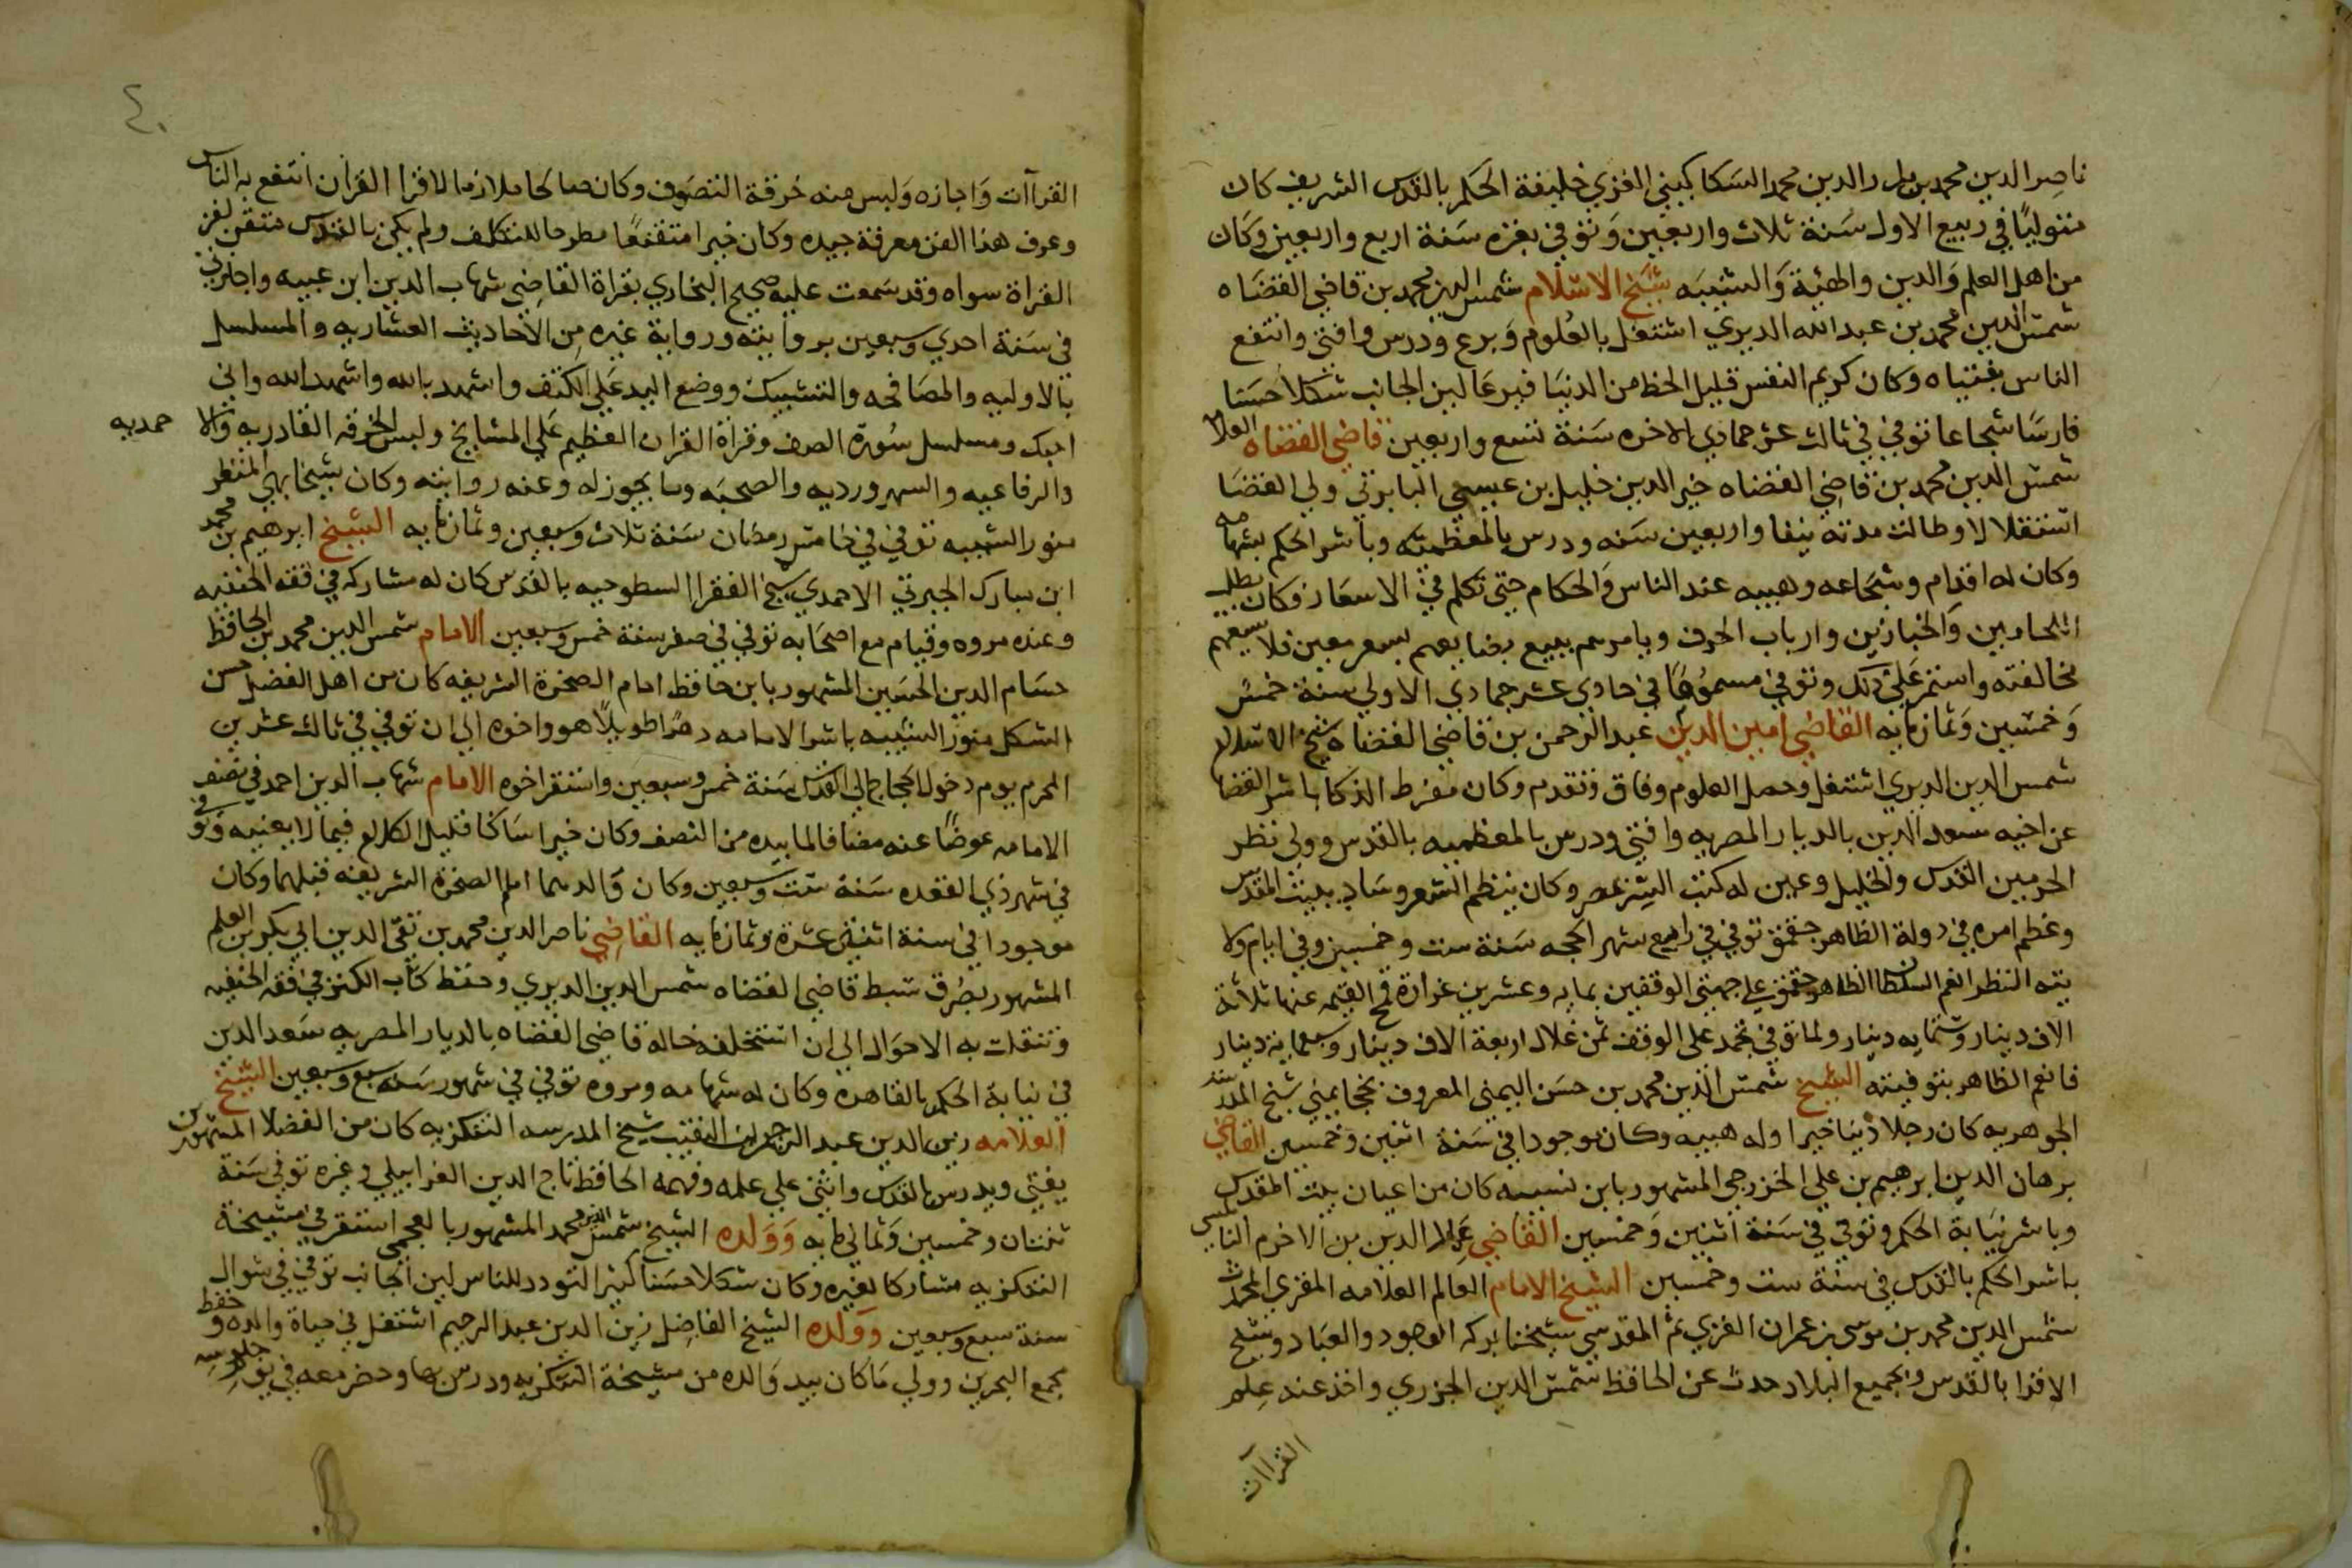 ناصر الدين محمد بن بدر الدين محمد السكاكيني الغزي خليفة الحكم بالقدس الشريف كان
متوليًا في ربيع الاول سنة ثلاث واربعين وتوفي بغزه سنة اربع واربعين وكان
من اهل العلم والدين والهيئة والشيبه شيخ الاسلام شمس الدين محمد بن قاضي القضاه
شمس الدين محمد بن عبد الله الديري اشتغل بالعلوم وبرع ودرس وافتى وانتفع
الناس بفتياه وكان كريم النفس قليل الحظ من الدنيا لين الجانب شكلا حسنا
فارسًا شجاعا توفي في ثالث عشر جمادي الاخره سنة تسع واربعين قاضي القضاه العلا
شمس الدين محمد بن قاضي القضاه خير الدين خليل بن عيسى البابرتي ولي القضا
استقلالا وطالت مدته نيفا واربعين سنه ودرس بالمعظميه وباشر الحكم بشهامه
وكان له اقدام وشجاعه وهيبه عند الناس والحكام حتى تكلم في الاسعار وكان يطلب
اللحامين والخبازين وارباب الحرف ويامرهم ببيع بضايعهم بسعر معين فلا يسعهم
مخالفته واستمر على ذلك وتوفي مسمومًا في حادي عشر جمادي الاولي سنة خمس
وخمسين وثمانمايه القاضي امين الدين عبد الرحمن بن قاضي القضاه شيخ الاسلام
شمس الدين الديري اشتغل وحصل العلوم وفاق وتقدم وكان مفرط الذكا باشر القضا
عن اخيه سعد الدين بالديار المصريه وافتى ودرس بالمعظميه بالقدس وولي نظر
الحرمين القدس والخليل وعين له كتب السر بمصر وكان ينظم الشعر وساد ببيت المقدس
وعظم امره في دولة الظاهر جقمق توفي في رابع شهر الحجه سنة ست وخمسين وفي ايام ولا
يته النظر انعم السلطان الظاهر جقمق علي جهتي الوقفين بمايه وعشرين غرارة قمح القيمه عنها ثلاثة
الاف دينار وستمايه دينار ولما توفي تجمد على الوقف ثمن غلال اربعة الاف دينار وسبعماية دينار
فانعم الظاهر بتوفيته الشيخ شمس الدين محمد بن حسن اليمني المعروف بخجا يمني شيخ المدرسة
الجوهريه كان رجلا دينا خيرا وله هيبه وكان موجودا في سنة اثنين وخمسين القاضي
برهان الدين ابرهيم بن علي الخزرجي المشهور بابن نسيبه كان من اعيان بيت المقدس
وباشر نيابة الحكم وتوفي في سنة اثنين وخمسين القاضي علا الدين بن الاخرم النابلسي
باشر الحكم بالقدس في سنة ست وخمسين الشيخ الامام العالم العلامه المقري المحدث
شمس الدين محمد بن موسى بن عمران الغزي ثم المقدسي شيخنا بركه الوجود والعباد وشيخ
الاقرا بالقدس وبجميع البلاد حدث عن الحافظ شمس الدين الجزري واخذ عنه علم
القراآت
٤٠
القراآت واجازه ولبس منه خرقة التصوف وكان صالحا ملازما لاقرا القران انتفع به الناس
وعرف هذا الفن معرفة جيده وكان خيرا متقنعًا مطرحا للتكلف ولم يكن بالقدس متقن لفن
القراة سواه وقد سمعت عليه صحيح البخاري بقراة القاضي شهاب الدين ابن عبيه واجازني
في سنة احدي وسبعين بروايته ورواية غيره من الاحاديث العشاريه والمسلسل
بالاوليه والمصافحه والتشبيك ووضع اليد علي الكتف واشهد بالله واشهد الله واني
احبك ومسلسل سورة الصف وقراة القران العظيم علي المشايخ ولبس الخرقه القادريه والا حمديه
والرفاعيه والسهرورديه والصحبه وما يجوز له وعنه روايته وكان شيخا بهي المنظر
منور الشيبه توفي في خامس رمضان سنة ثلاث وسبعين وثمانمايه الشيخ ابرهيم بن محمد
ابن مبارك الجبرتي الاحمدي شيخ الفقرا السطوحيه بالقدس كان له مشاركه في فقه الحنفيه
وعنده مروه وقيام مع اصحابه توفي في صفر سنة خمس وسبعين الامام شمس الدين محمد بن الحافظ
حسام الدين الحسين المشهور بابن حافظ امام الصخرة الشريفه كان من اهل الفضل حسن
الشكل منور الشيبه باشر الامامه دهرًا طويلًا هو واخوه الي ان توفي في ثالث عشرين
المحرم يوم دخول الحجاج الي القدس سنة خمس وسبعين واستقر اخوه الامام شهاب الدين احمد في نصف
الامامه عوضًا عنه مضافا لما بيده من النصف وكان خيرا ساكنا قليل الكلام فيما لا يعنيه وتوفي
في شهر ذي القعده سنة ست وسبعين وكان والدهما امام الصخرة الشريفه قبلهما وكان
موجودا في سنة اثني عشرة وثمانمايه القاضي ناصر الدين محمد بن تقي الدين ابي بكر بن العلم
المشهور ببصرق سبط قاضي القضاه شمس الدين الديري وحفظ كتاب الكنز في فقه الحنفيه
وتنقلت به الاحوال الي ان استخلفه خاله قاضي القضاه بالديار المصريه سعد الدين
في نيابة الحكم بالقاهره وكان له شهامه ومروه توفي في شهور سنه سبع وسبعين الشيخ
العلامه زين الدين عبد الرحمن بن النقيب شيخ المدرسه التنكزيه كان من الفضلا المشهورين
يفتي ويدرس بالقدس واثني علي علمه وفهمه الحافظ تاج الدين الغرابيلي وغيره توفي سنة
ثمان وخمسين وثمانمايه وولده الشيخ شمس الدين محمد المشهور بالعجمي استقر في مشيخة
التنكزيه مشاركا لغيره وكان شكلا حسنا كثير التودد للناس لين الجانب توفي في شوال
سنة سبع وسبعين وولده الشيخ الفاضل زين الدين عبد الرحيم اشتغل في حياة والده وحفظ
مجمع البحرين وولي ما كان بيد والده من مشيخة التنكزيه ودرس بها وحضر معه في يوم جلوسه